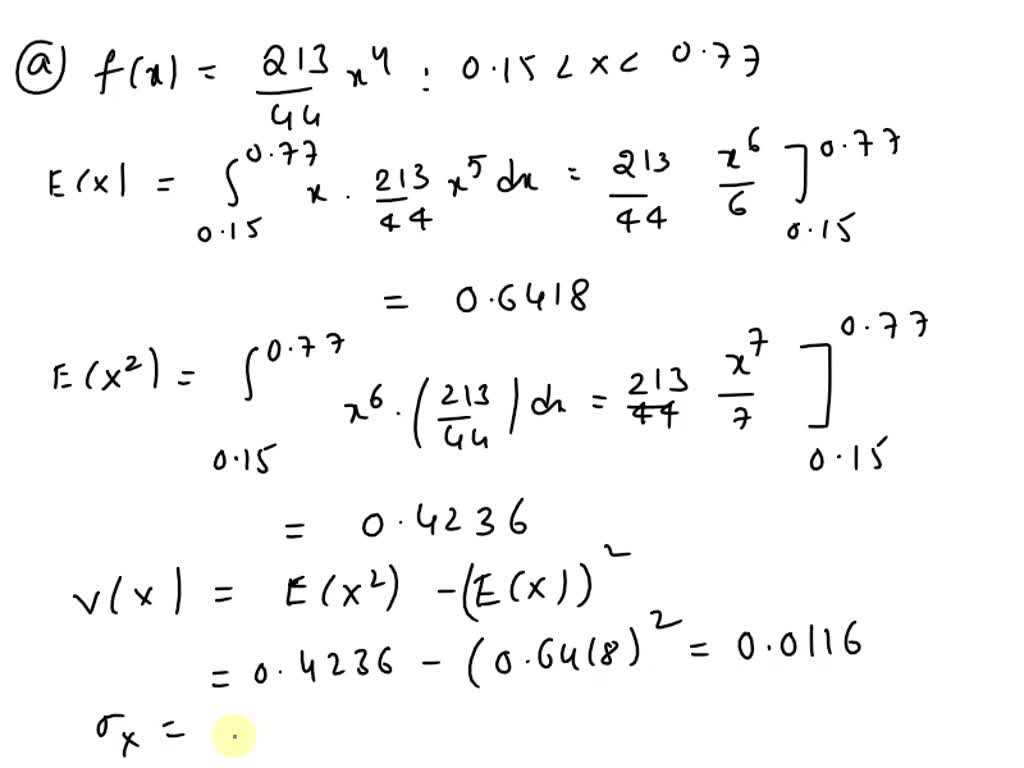 ⓐ f(x) = 213/44 x⁴ : 0.15 < x < 0.77
E(x) = ∫_{0.15}^{0.77} x · 213/44 x⁵ dx = 213/44 x⁶/6 ]_{0.15}^{0.77}
= 0.6418
E(x²) = ∫_{0.15}^{0.77} x⁶ · (213/44) dx = 213/44 x⁷/7 ]_{0.15}^{0.77}
= 0.4236
V(x) = E(x²) - (E(x))²
= 0.4236 - (0.6418)² = 0.0116
σₓ = .